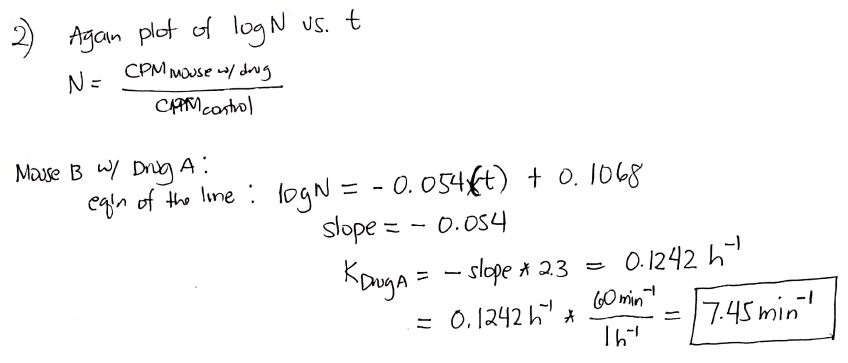 2) Again plot of log N vs. t
N = CPM mouse w/ drug / CPM control
Mouse B w/ Drug A:
eq'n of the line : log N = - 0.054(t) + 0.1068
slope = - 0.054
K Drug A = - slope * 2.3 = 0.1242 h⁻¹
= 0.1242 h⁻¹ * 60 min⁻¹ / 1 h⁻¹ = 7.45 min⁻¹